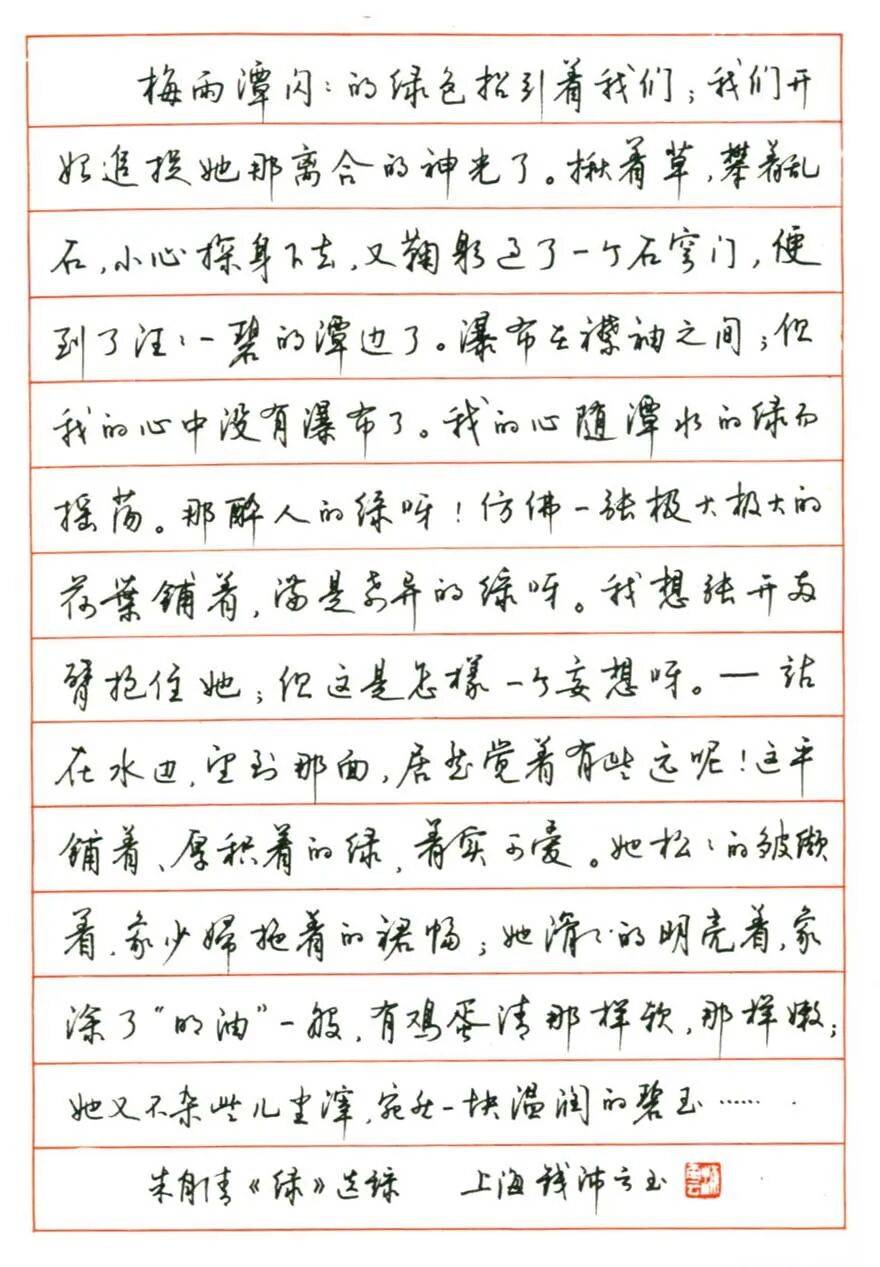 梅雨潭闪〻的绿色招引着我们；我们开
始追捉她那离合的神光了。揪着草，攀着乱
石，小心探身下去，又鞠躬过了一个石穹门，便
到了汪〻一碧的潭边了。瀑布在襟袖之间；但
我的心中没有瀑布了。我的心随潭水的绿而
摇荡。那醉人的绿呀！仿佛一张极大极大的
荷葉铺着，满是奇异的绿呀。我想张开两
臂抱住她；但这是怎樣一个妄想呀。—站
在水边，望到那面，居然觉着有些远呢！这平
铺着、厚积着的绿，着实可爱。她松〻的皱缬
着，象少婦拖着的裙幅；她滑〻的明亮着，象
涂了“明油”一般，有鸡蛋清那样软，那样嫩；
她又不杂些儿尘滓，宛然一块温润的碧玉……
朱自清《绿》选録 上海钱沛云书